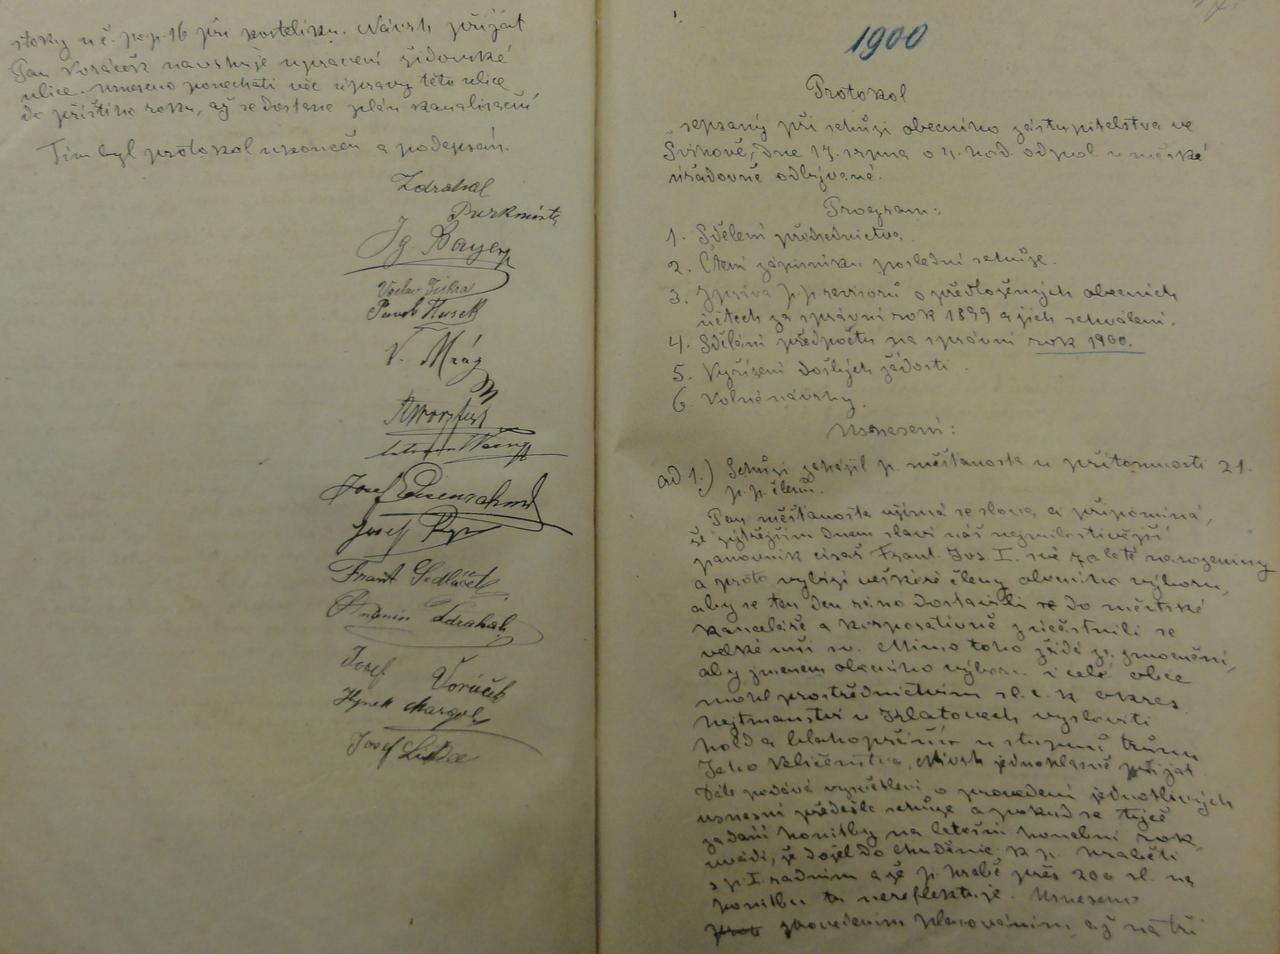 stoky u č. p. 16 při kostelíku. Návrh přijat
Pan Voráček navrhuje upravení židovské
ulice. Usneseno ponechati věc úpravy této ulice
do příštího roku, až se dostane plán kanalisační
Tím byl protokol ukončen a podepsán.
Zdrahal
Purkmistr
Ig. Bayer
Václav Fiškra
Pavel Husek
V. Mráz
Josef Eisenschiml
Josef
Frant Sedláček
Antonín Zdrahal
Josef Voráček
Hynek Margol
Josef
1900
Protokol
sepsaný při schůzi obecního zastupitelstva ve
Švihově, dne 17. srpna o 4. hod. odpol v měské
úřadovně odbývané.
Program:
1. Sdělení předsednictva.
2. Čtení zápisníku poslední schůze.
3. Zpráva p. p. revisorů o předložených obecních
účtech za správní rok 1899 a jich schválení.
4. Sdělání předpočtu na správní rok 1900.
5. Vyřízení došlých žádostí.
6. Volné návrhy.
Usnesení:
ad 1.) Schůzi zahájil p. měšťanosta u přítomnosti 21.
p. p. členů.
Pan měšťanosta ujímá se slova a připomíná,
že zýtřejším dnem slaví náš nejmilostivější
panovník císař Frant. Jos I. své 70 leté narozeniny
a proto vybízí veškeré členy obecního výboru,
aby se ten den ráno dostavili se do městské
kanceláře a korporativně zúčastnili se
velké mši sv. Mimo toho žádá za zmocnění,
aby jmenem obecního výboru i celé obce
mohl prostřednictvím sl. c. k okres
hejtmanství v Klatovech vysloviti
hold a blahopřání u stupňů trůnu
Jeho Veličenstva. Návrh jednohlasně přijat
Dále podává vysvětlení o provedení jednotlivých
usnesní předešlé schůze a pokud se týče
zadání honitby na letošní honební rok
uvádí, že dojel do Chuděnic k p. hraběti
s p. I. radním a že p. hrabě přes 200 zl. na
honitbu tu nereflektuje. Usneseno
zpoviěním plakováním, až na tři